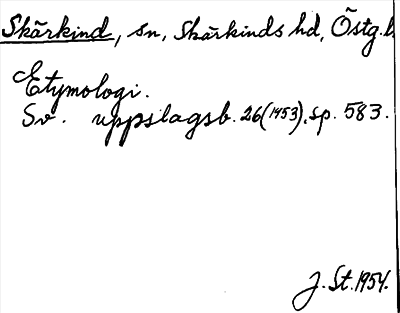 Skärkind, sn, Skärkinds hd, Östg.l.
Etymologi.
Sv. uppslagsb. 26(1953), sp. 583.
J. St. 1954.